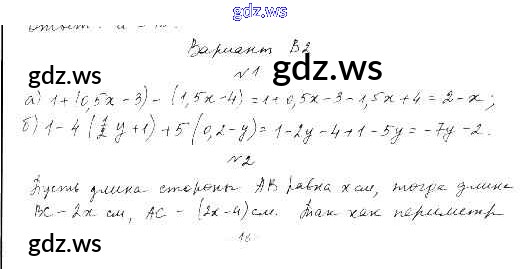 gdz.ws
Ответ:
Вариант В2
gdz.ws
№1
gdz.ws
а) 1+(0,5x-3)-(1,5x-4)=1+0,5x-3-1,5x+4=2-x;
б) 1-4(1/2y+1)+5(0,2-y)=1-2y-4+1-5y=-7y-2.
№2
Пусть длина стороны AB равна x см, тогда длина
BC - 2x см, AC - (2x-4) см. Так как периметр
gdz.ws
16
gdz.ws